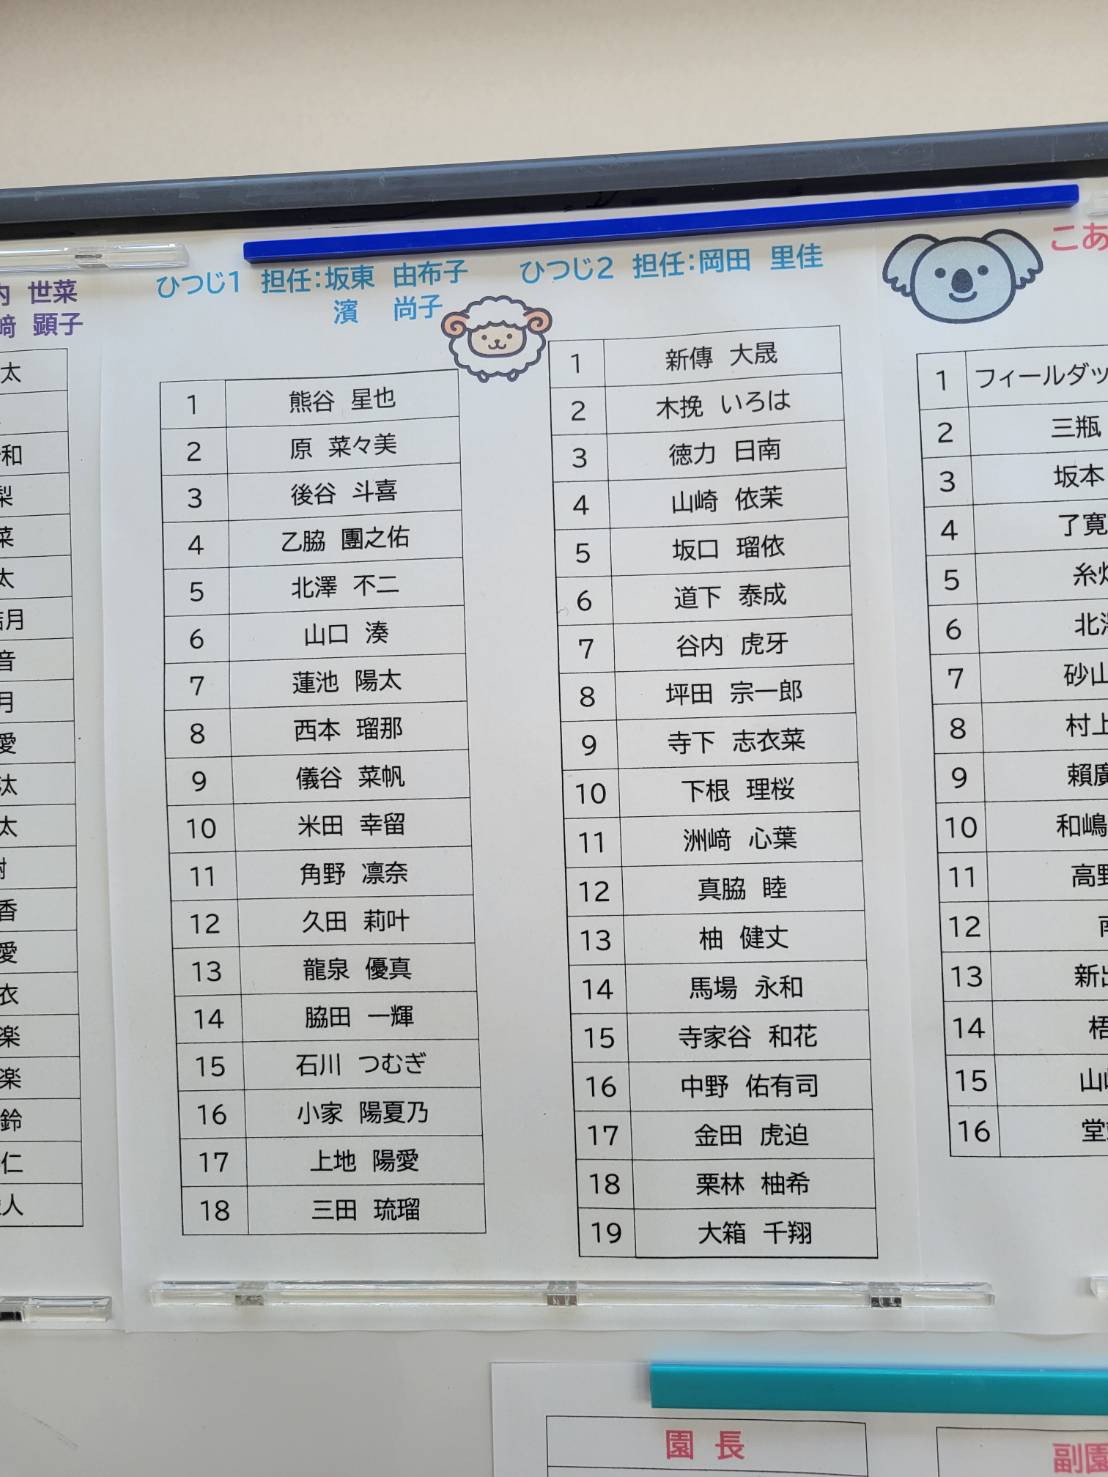 内 世菜
﨑 顕子
太
和
梨
菜
太
月
音
月
愛
汰
太
樹
香
愛
衣
楽
楽
鈴
仁
人
ひつじ1 担任：坂東 由布子
濱 尚子
1 熊谷 星也
2 原 菜々美
3 後谷 斗喜
4 乙脇 團之佑
5 北澤 不二
6 山口 湊
7 蓮池 陽太
8 西本 瑠那
9 儀谷 菜帆
10 米田 幸留
11 角野 凛奈
12 久田 莉叶
13 龍泉 優真
14 脇田 一輝
15 石川 つむぎ
16 小家 陽夏乃
17 上地 陽愛
18 三田 琉瑠
ひつじ2 担任：岡田 里佳
1 新傳 大晟
2 木挽 いろは
3 徳力 日南
4 山崎 依茉
5 坂口 瑠依
6 道下 泰成
7 谷内 虎牙
8 坪田 宗一郎
9 寺下 志衣菜
10 下根 理桜
11 洲﨑 心葉
12 真脇 睦
13 柚 健丈
14 馬場 永和
15 寺家谷 和花
16 中野 佑有司
17 金田 虎迫
18 栗林 柚希
19 大箱 千翔
こあ
1 フィールダッ
2 三瓶
3 坂本
4 了寛
5 糸
6 北
7 砂山
8 村上
9 頼廣
10 和嶋
11 高野
12
13 新出
14 梧
15 山
16 堂
園 長
副園